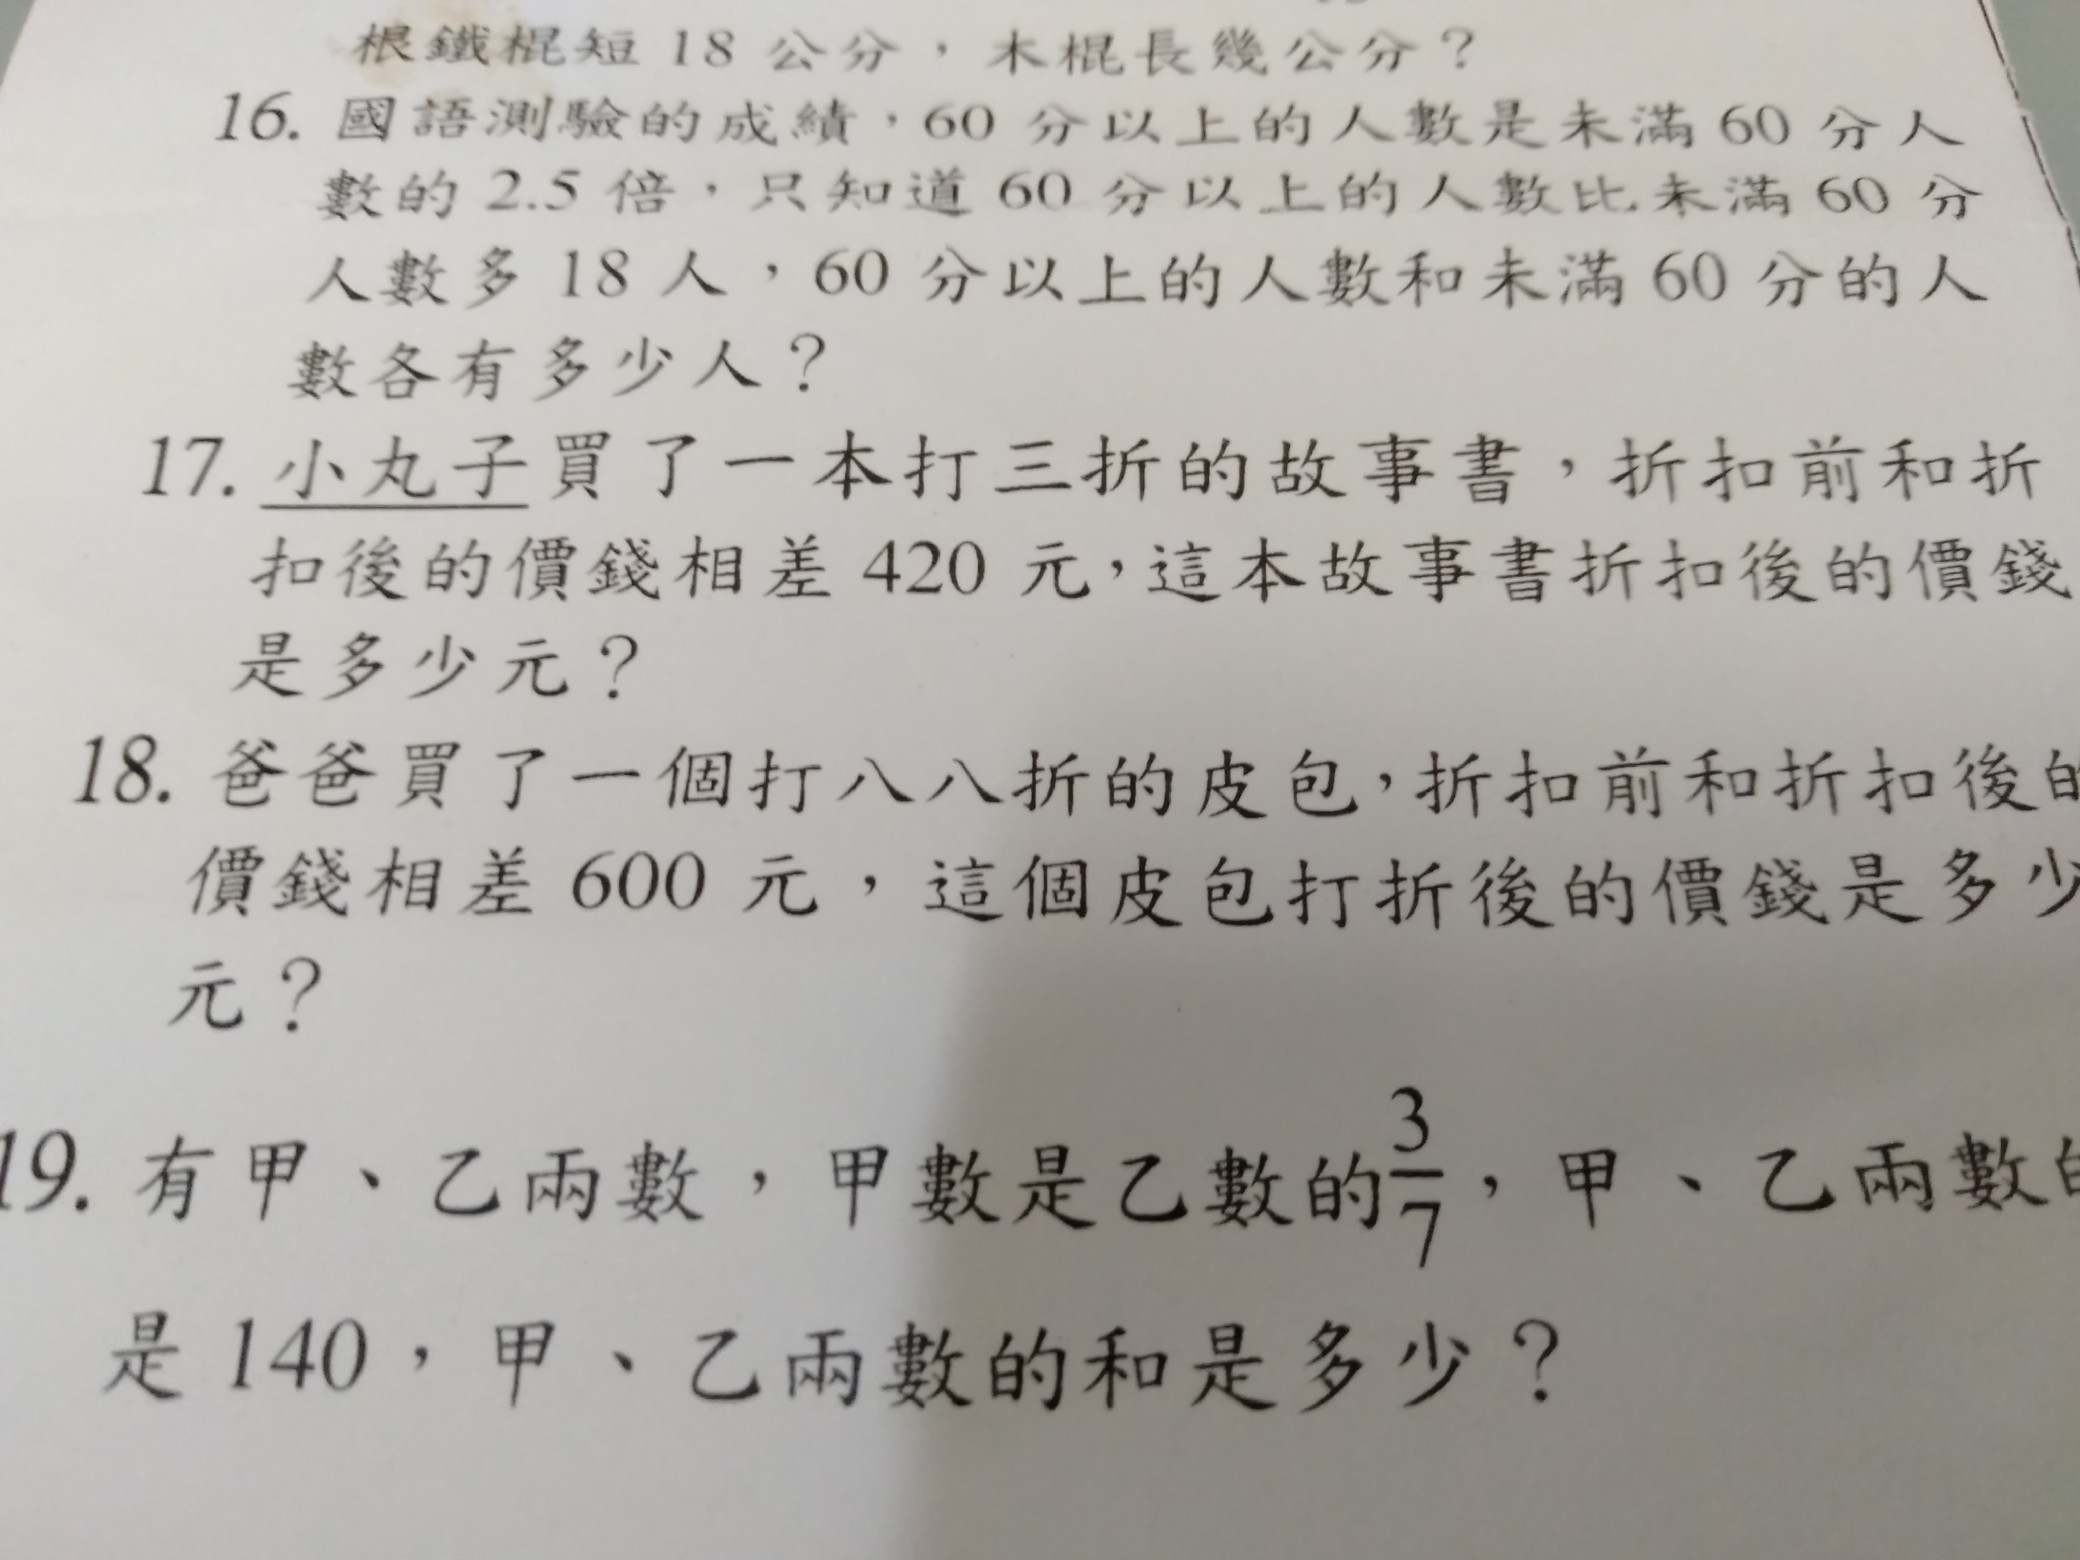 根鐵棍短 18 公分，木棍長幾公分？
16. 國語測驗的成績，60 分以上的人數是未滿 60 分人
數的 2.5 倍，只知道 60 分以上的人數比未滿 60 分
人數多 18 人，60 分以上的人數和未滿 60 分的人
數各有多少人？
17. 小丸子買了一本打三折的故事書，折扣前和折
扣後的價錢相差 420 元，這本故事書折扣後的價錢
是多少元？
18. 爸爸買了一個打八八折的皮包，折扣前和折扣後的
價錢相差 600 元，這個皮包打折後的價錢是多少
元？
19. 有甲、乙兩數，甲數是乙數的3/7，甲、乙兩數的
是 140，甲、乙兩數的和是多少？